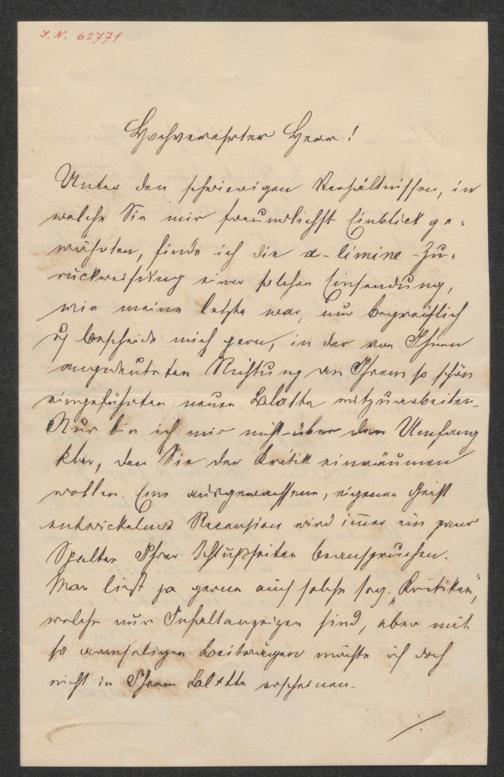 I. N. 62771
Hochverehrter Herr!
Unter den schwierigen Verhältnissen, in
welche Sie mir freundlichst Einblick ge-
währten, finde ich die a-limine-Zu-
rückweisung einer solchen Einsendung,
wie meine letzte war, nur begreiflich
u. bescheide mich gern, in der von Ihnen
angedeuteten Richtung an Ihrem so schön
eingeführten neuen Blatte mitzuarbeiten.
Nur bin ich mir nicht über den Umfang
klar, den Sie der Kritik einräumen
wollen. Eine ausgewachsene, eigenen Geist
entwickelnde Recension wird immer ein paar
Spalten Ihrer Schlußseiten beanspruchen.
Man liest ja gerne auch solche sog. „Kritiken",
welche nur Inhaltanzeigen sind, aber mit
so armseligen Beiträgen möchte ich doch
nicht in Ihrem Blatte erscheinen.